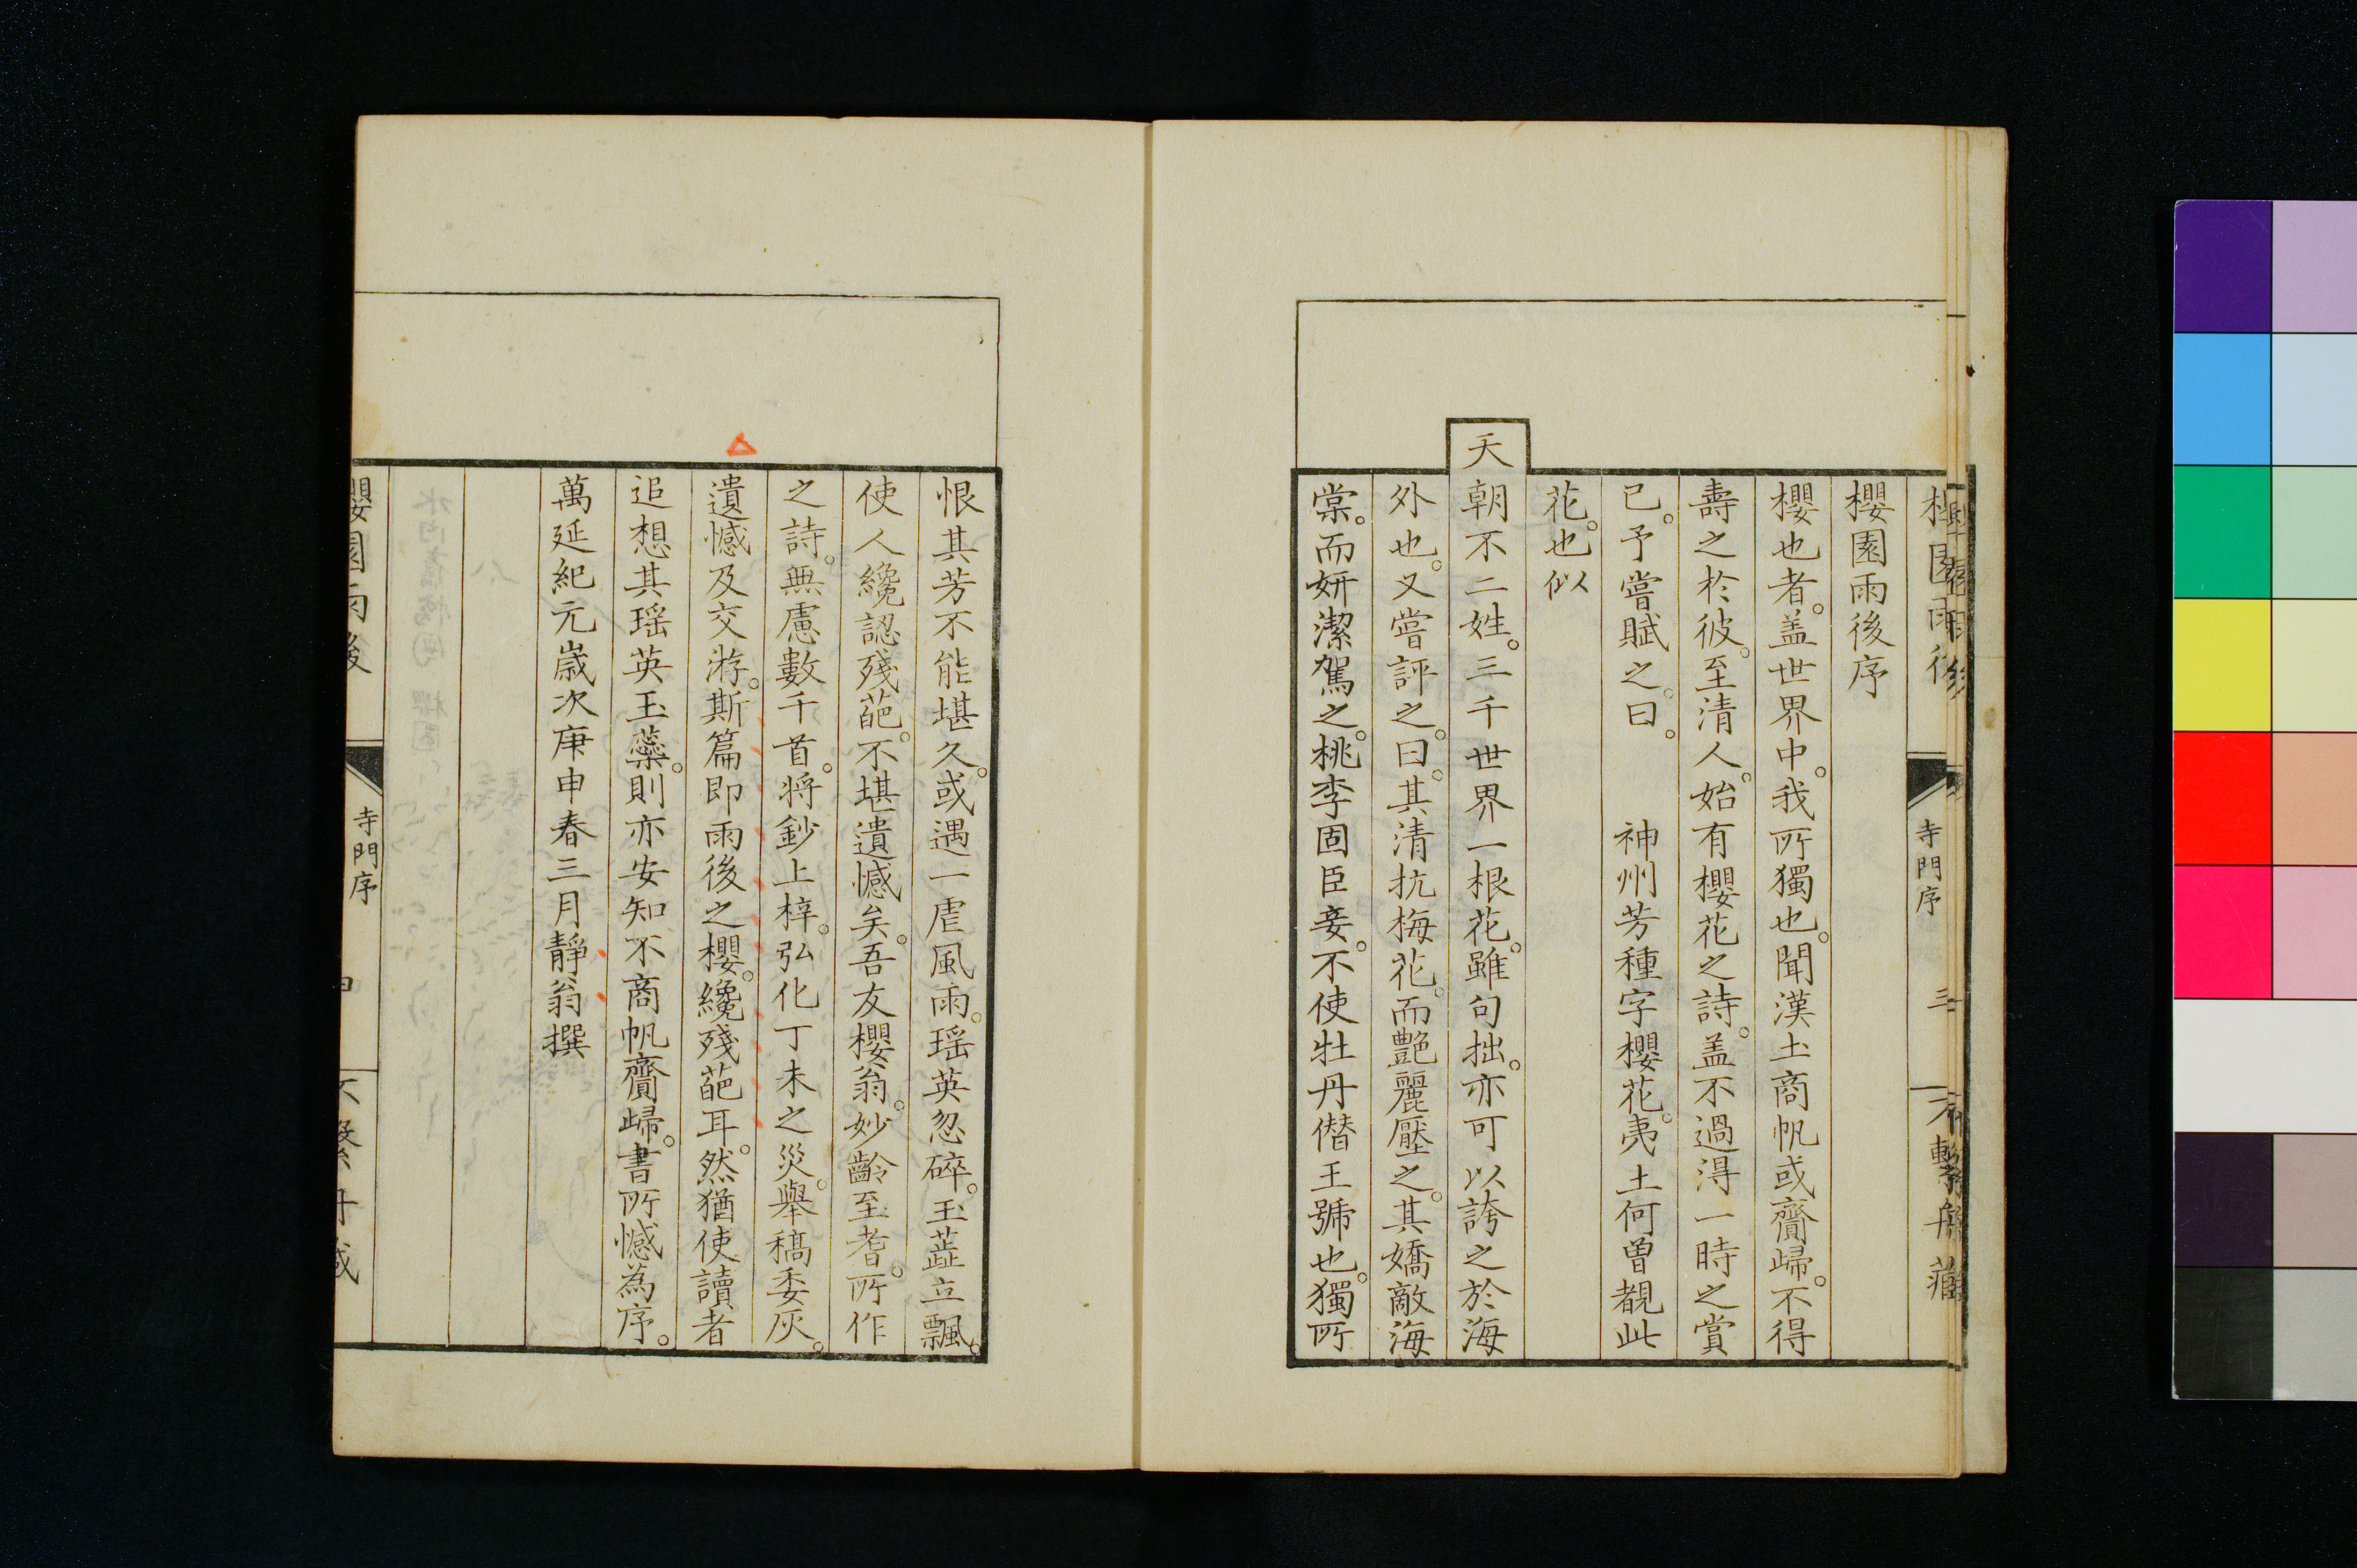 櫻園雨後序
櫻也者。盖世界中。我所獨也。聞漢土商帆或齎歸。不得
壽之於彼。至清人。始有櫻花之詩。盖不過得一時之賞
已。予嘗賦之。曰。 神州芳種字櫻花。夷土何曽覩此
花。也似
天朝不二姓。三千世界一根花。雖句拙。亦可以誇之於海
外也。又嘗評之。曰。其清抗梅花。而艶麗壓之。其嬌敵海
棠。而妍潔駕之。桃李固臣妾。不使牡丹僭王號也。獨所
寺門序
三
恨其芳不能堪久。或遇一虐風雨。瑶英忽碎。玉蘂立飄。
使人纔認殘葩。不堪遺憾矣。吾友櫻翁。妙齡至耆。所作
之詩。無慮數千首。将鈔上梓。弘化丁未之災。舉稿委灰。
遺憾及交游。斯篇即雨後之櫻。纔殘葩耳。然猶使讀者
追想其瑶英玉蘂。則亦安知不商帆齎歸。書所憾為序。
萬延紀元歳次庚申春三月靜翁撰
櫻園雨後
寺門序